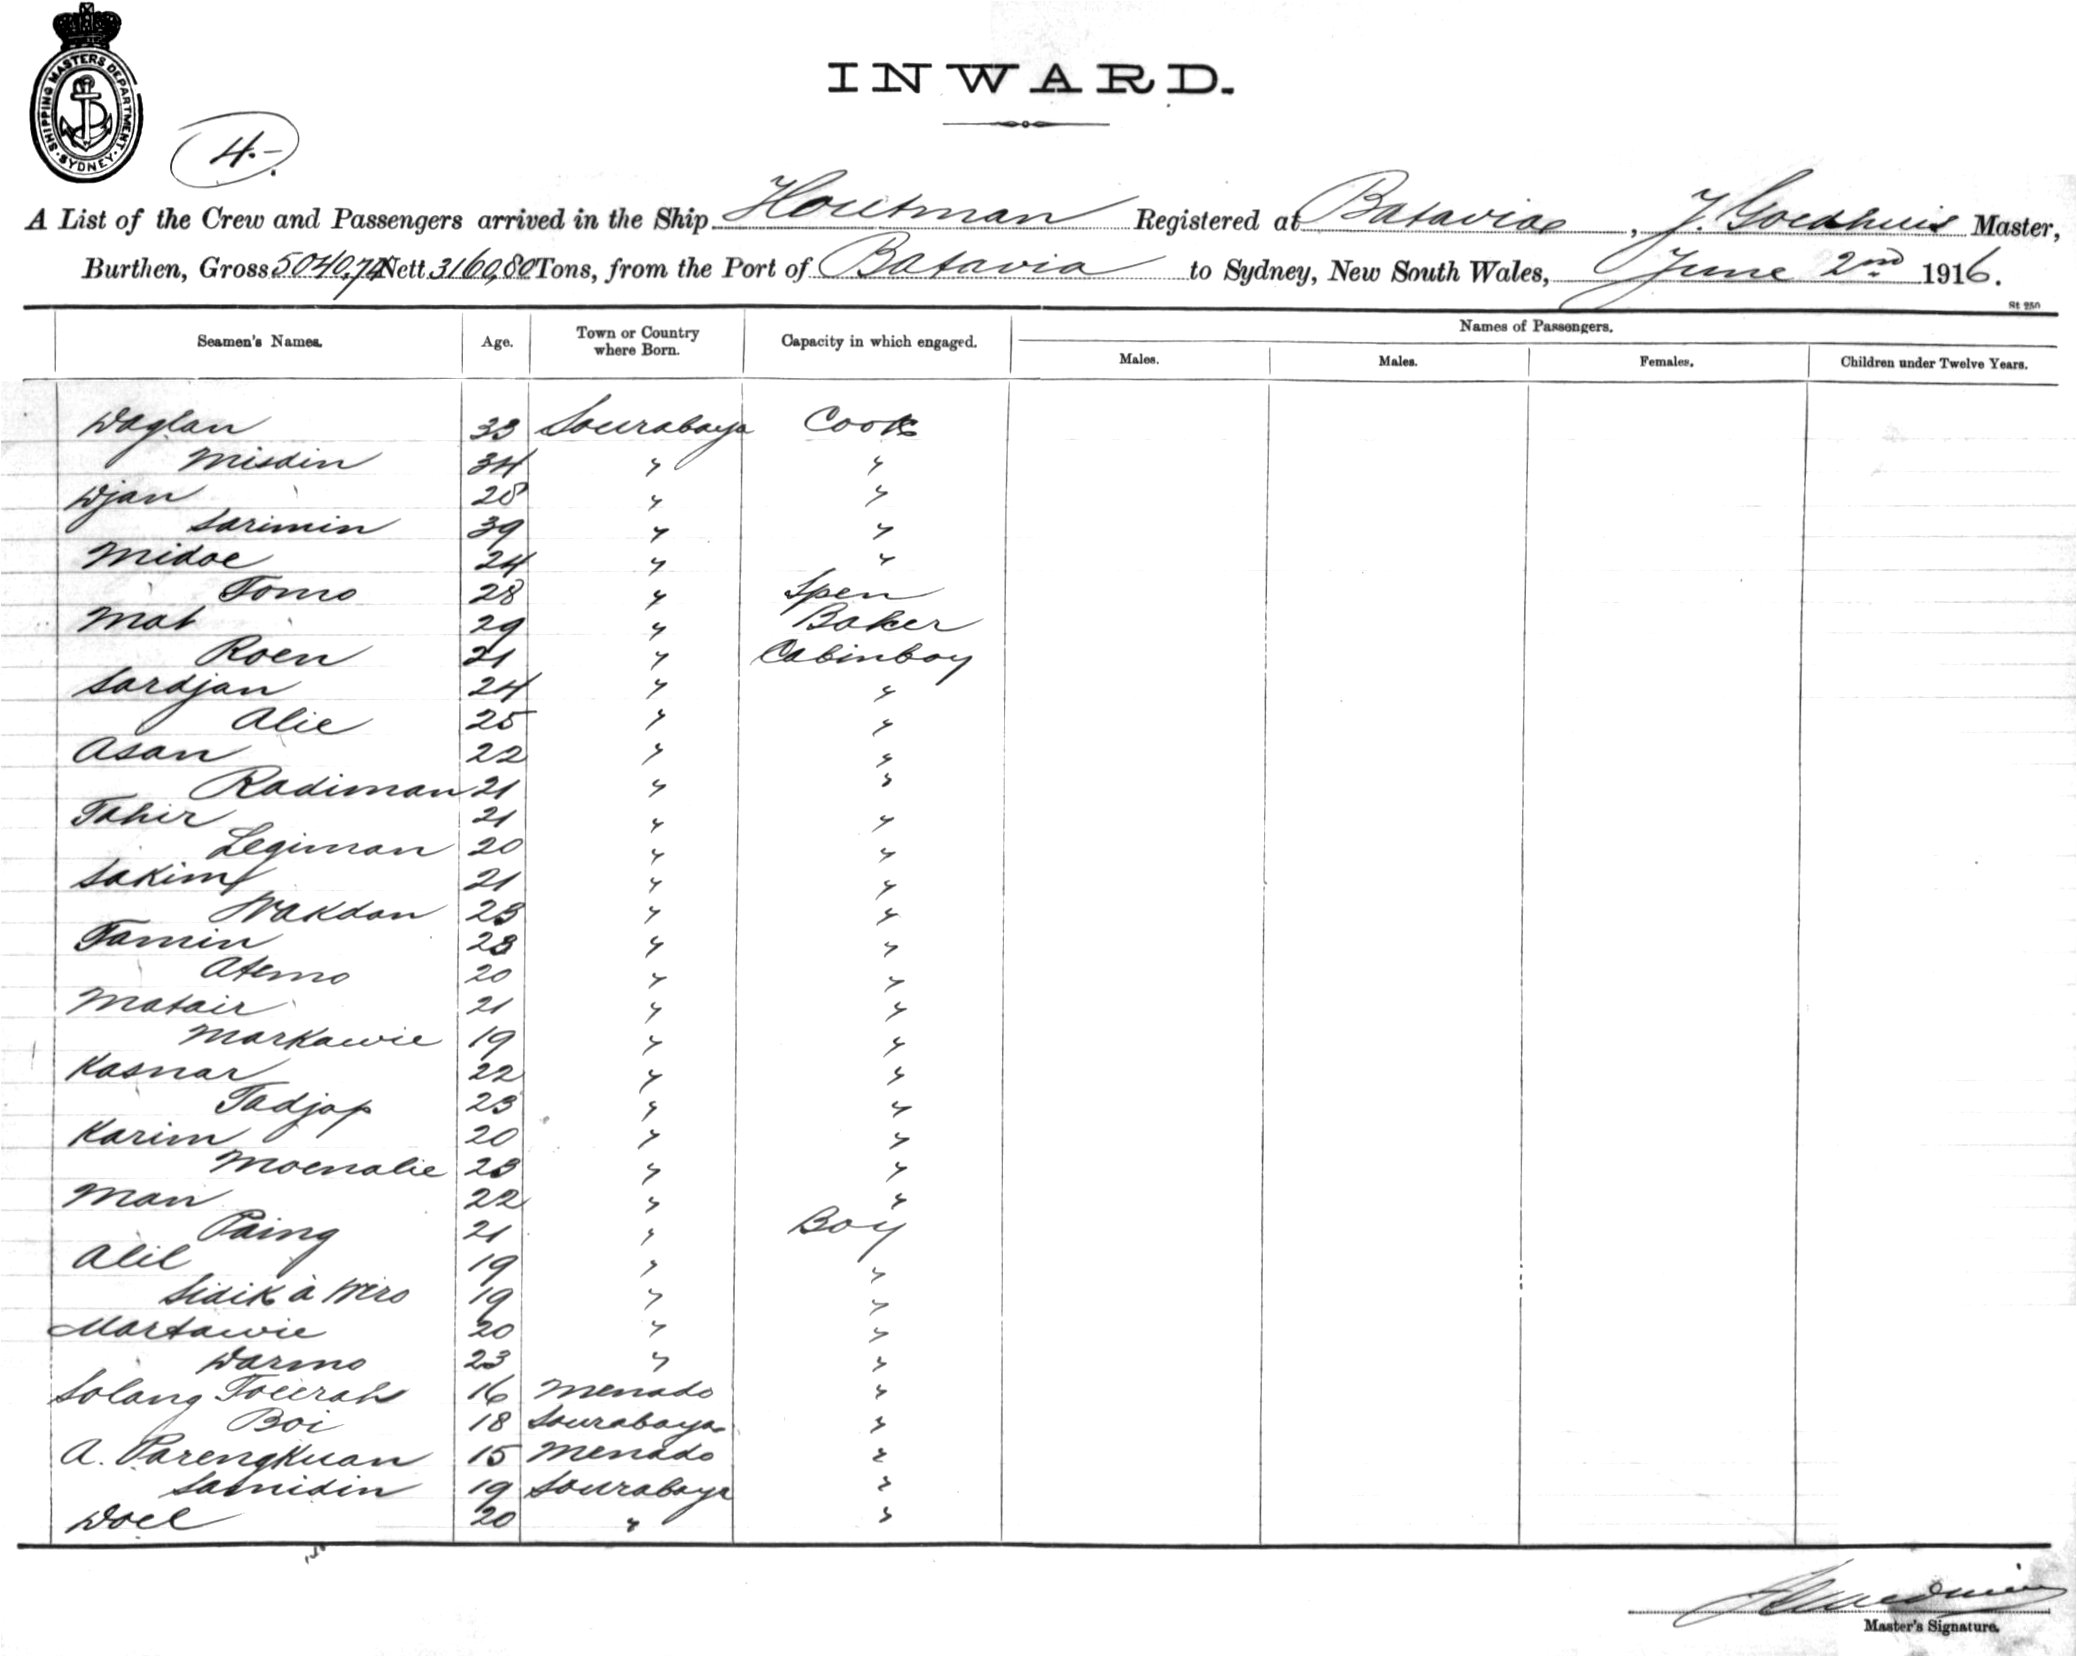 SHIPPING MASTERS DEPARTMENT · SYDNEY ·
INWARD.
4.-
A List of the Crew and Passengers arrived in the Ship Houtman Registered at Batavia, J. Goedhuis Master,
Burthen, Gross 5040,74 Nett 3160,80 Tons, from the Port of Batavia to Sydney, New South Wales, June 2nd 1916.
St 250
Seamen's Names. Age. Town or Country where Born. Capacity in which engaged. Names of Passengers.
Males. Males. Females. Children under Twelve Years.
Waglan 33 Sourabaya Cook
Misdin 34 " "
Djan 28 " "
Sarimin 39 " "
Midoe 24 " "
Tomo 28 " Spen
Mat 29 " Baker
Roen 21 " Cabinboy
Sardjan 24 " "
Alie 25 " "
Asan 22 " "
Radiman 21 " "
Tahir 21 " "
Legiman 20 " "
Sakim 21 " "
Wakdan 23 " "
Tamin 23 " "
Atemo 20 " "
Matair 21 " "
Markawie 19 " "
Kasnar 22 " "
Tadjap 23 " "
Karim 20 " "
Moenalie 23 " "
Man 22 " "
Paing 21 " Boy
Alil 19 " "
Sidik à Wiro 19 " "
Martawie 20 " "
Darmo 23 " "
Solang Tourah 16 Menado "
Boi 18 Sourabaya "
A. Parengkuan 15 Menado "
Samidin 19 Sourabaya "
Doel 20 " "
Master's Signature.